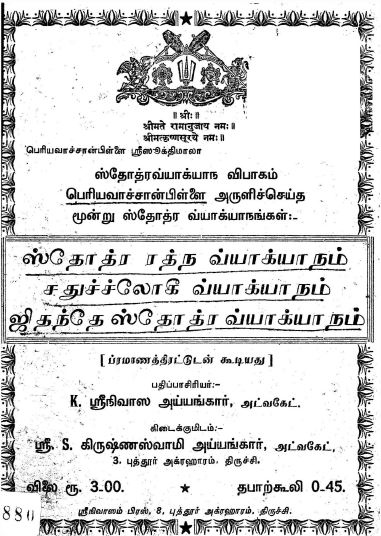 ॥ ஸ்ரீ: ॥
ஸ்ரீமதே ராமாநுஜாய நம:॥
ஸ்ரீமத்க்ருஷ்ணஸூரயே நம:॥
பெரியவாச்சான்பிள்ளை ஸ்ரீஸூக்திமாலா
ஸ்தோத்ரவ்யாக்யாந விபாகம்
பெரியவாச்சான்பிள்ளை அருளிச்செய்த
மூன்று ஸ்தோத்ர வ்யாக்யாநங்கள்:-
ஸ்தோத்ர ரத்ந வ்யாக்யாநம்
சதுச்ச்லோகீ வ்யாக்யாநம்
ஜிதந்தே ஸ்தோத்ர வ்யாக்யாநம்
[ ப்ரமாணத்திரட்டுடன் கூடியது ]
பதிப்பாசிரியர்:-
K. ஸ்ரீநிவாஸ அய்யங்கார், அட்வகேட்.
கிடைக்குமிடம்:-
ஸ்ரீ. S. கிருஷ்ணஸ்வாமி அய்யங்கார், அட்வகேட்,
3, புத்தூர் அக்ரஹாரம், திருச்சி.
விலை ரூ. 3-00. ★ தபாற்கூலி 0-45.
ஸ்ரீநிவாஸம் பிரஸ், 8, புத்தூர் அக்ரஹாரம், திருச்சி.
880